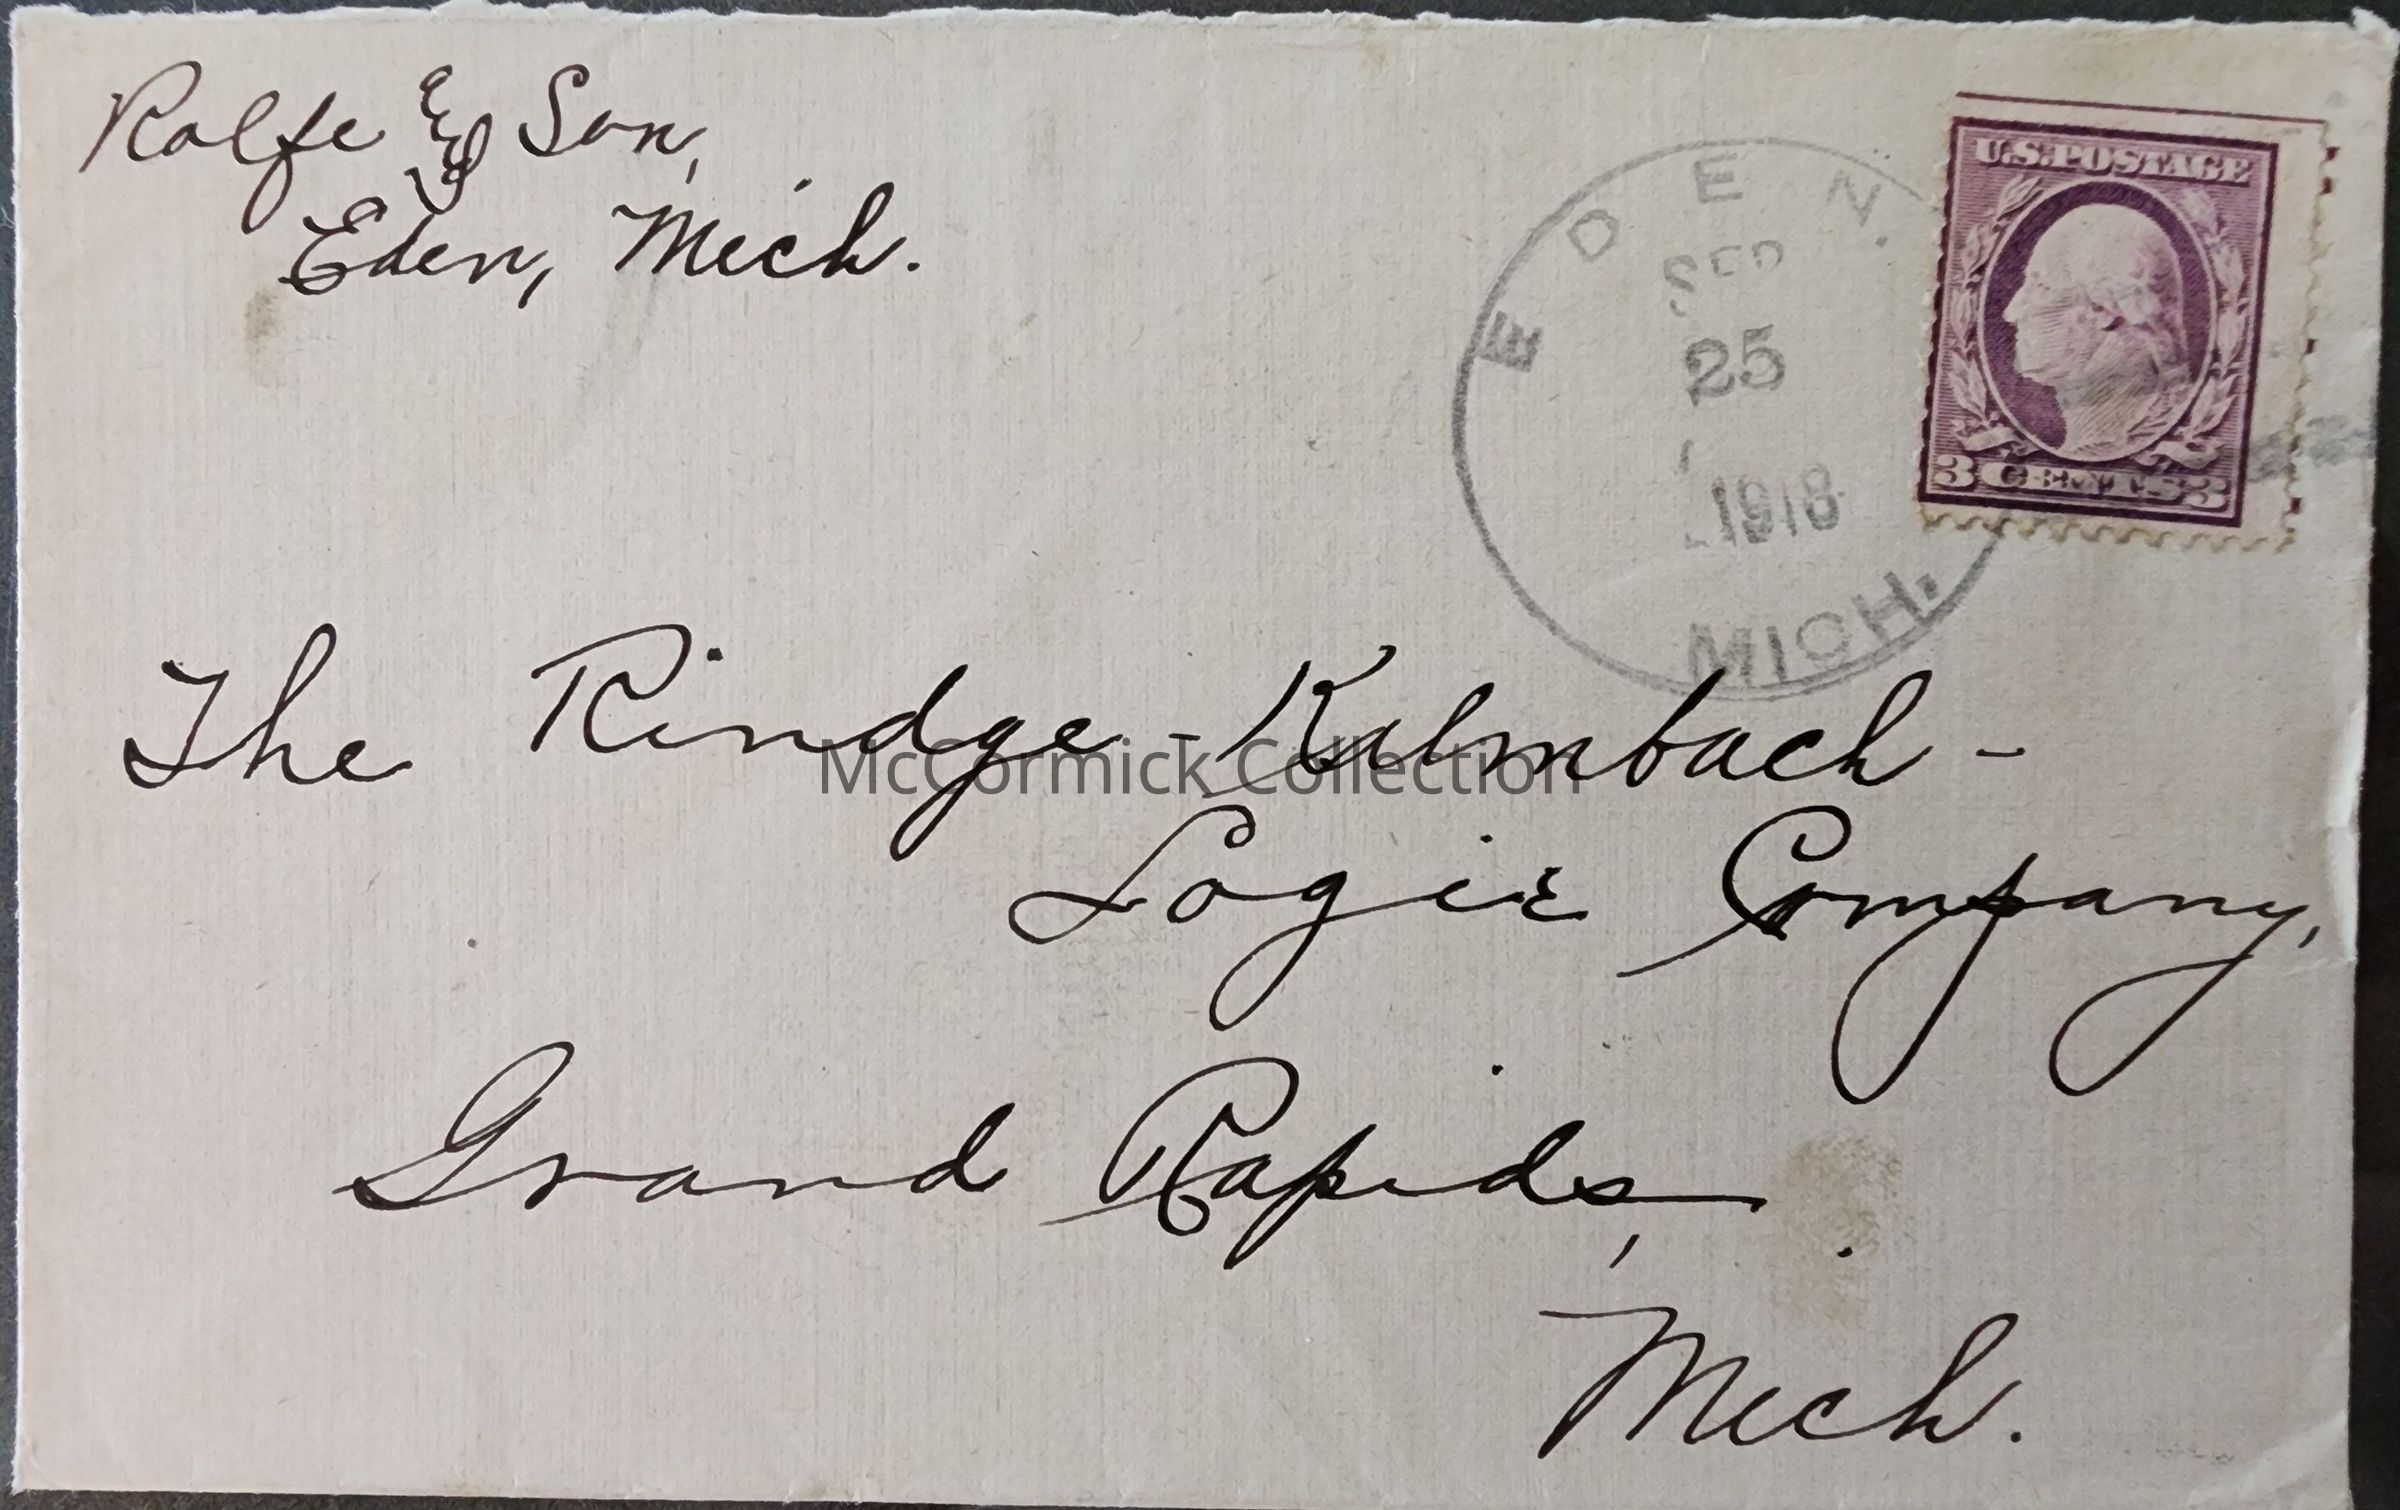 Rolfe & Son,
Eden, Mich.
EDEN.
SEP
25
1918
MICH.
U.S. POSTAGE
3 CENTS 3
The Rindge-Kalmbach-
Logie Company,
Grand Rapids,
Mich.
McCormick Collection